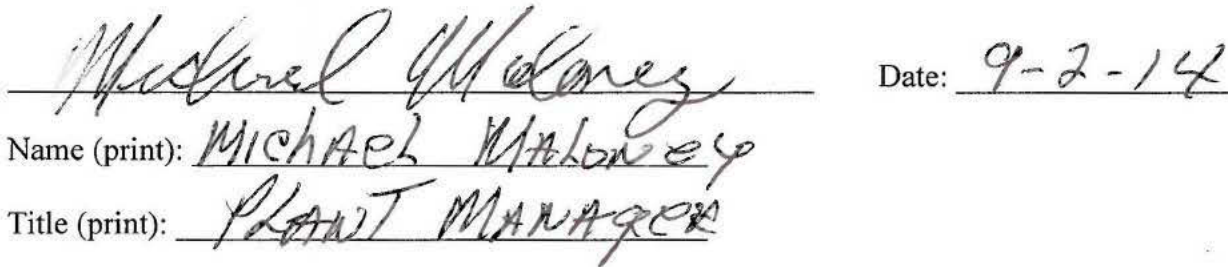 Michael Maloney Date: 9-2-14
Name (print): MIChAEL MALONEY
Title (print): PLANT MANAGER